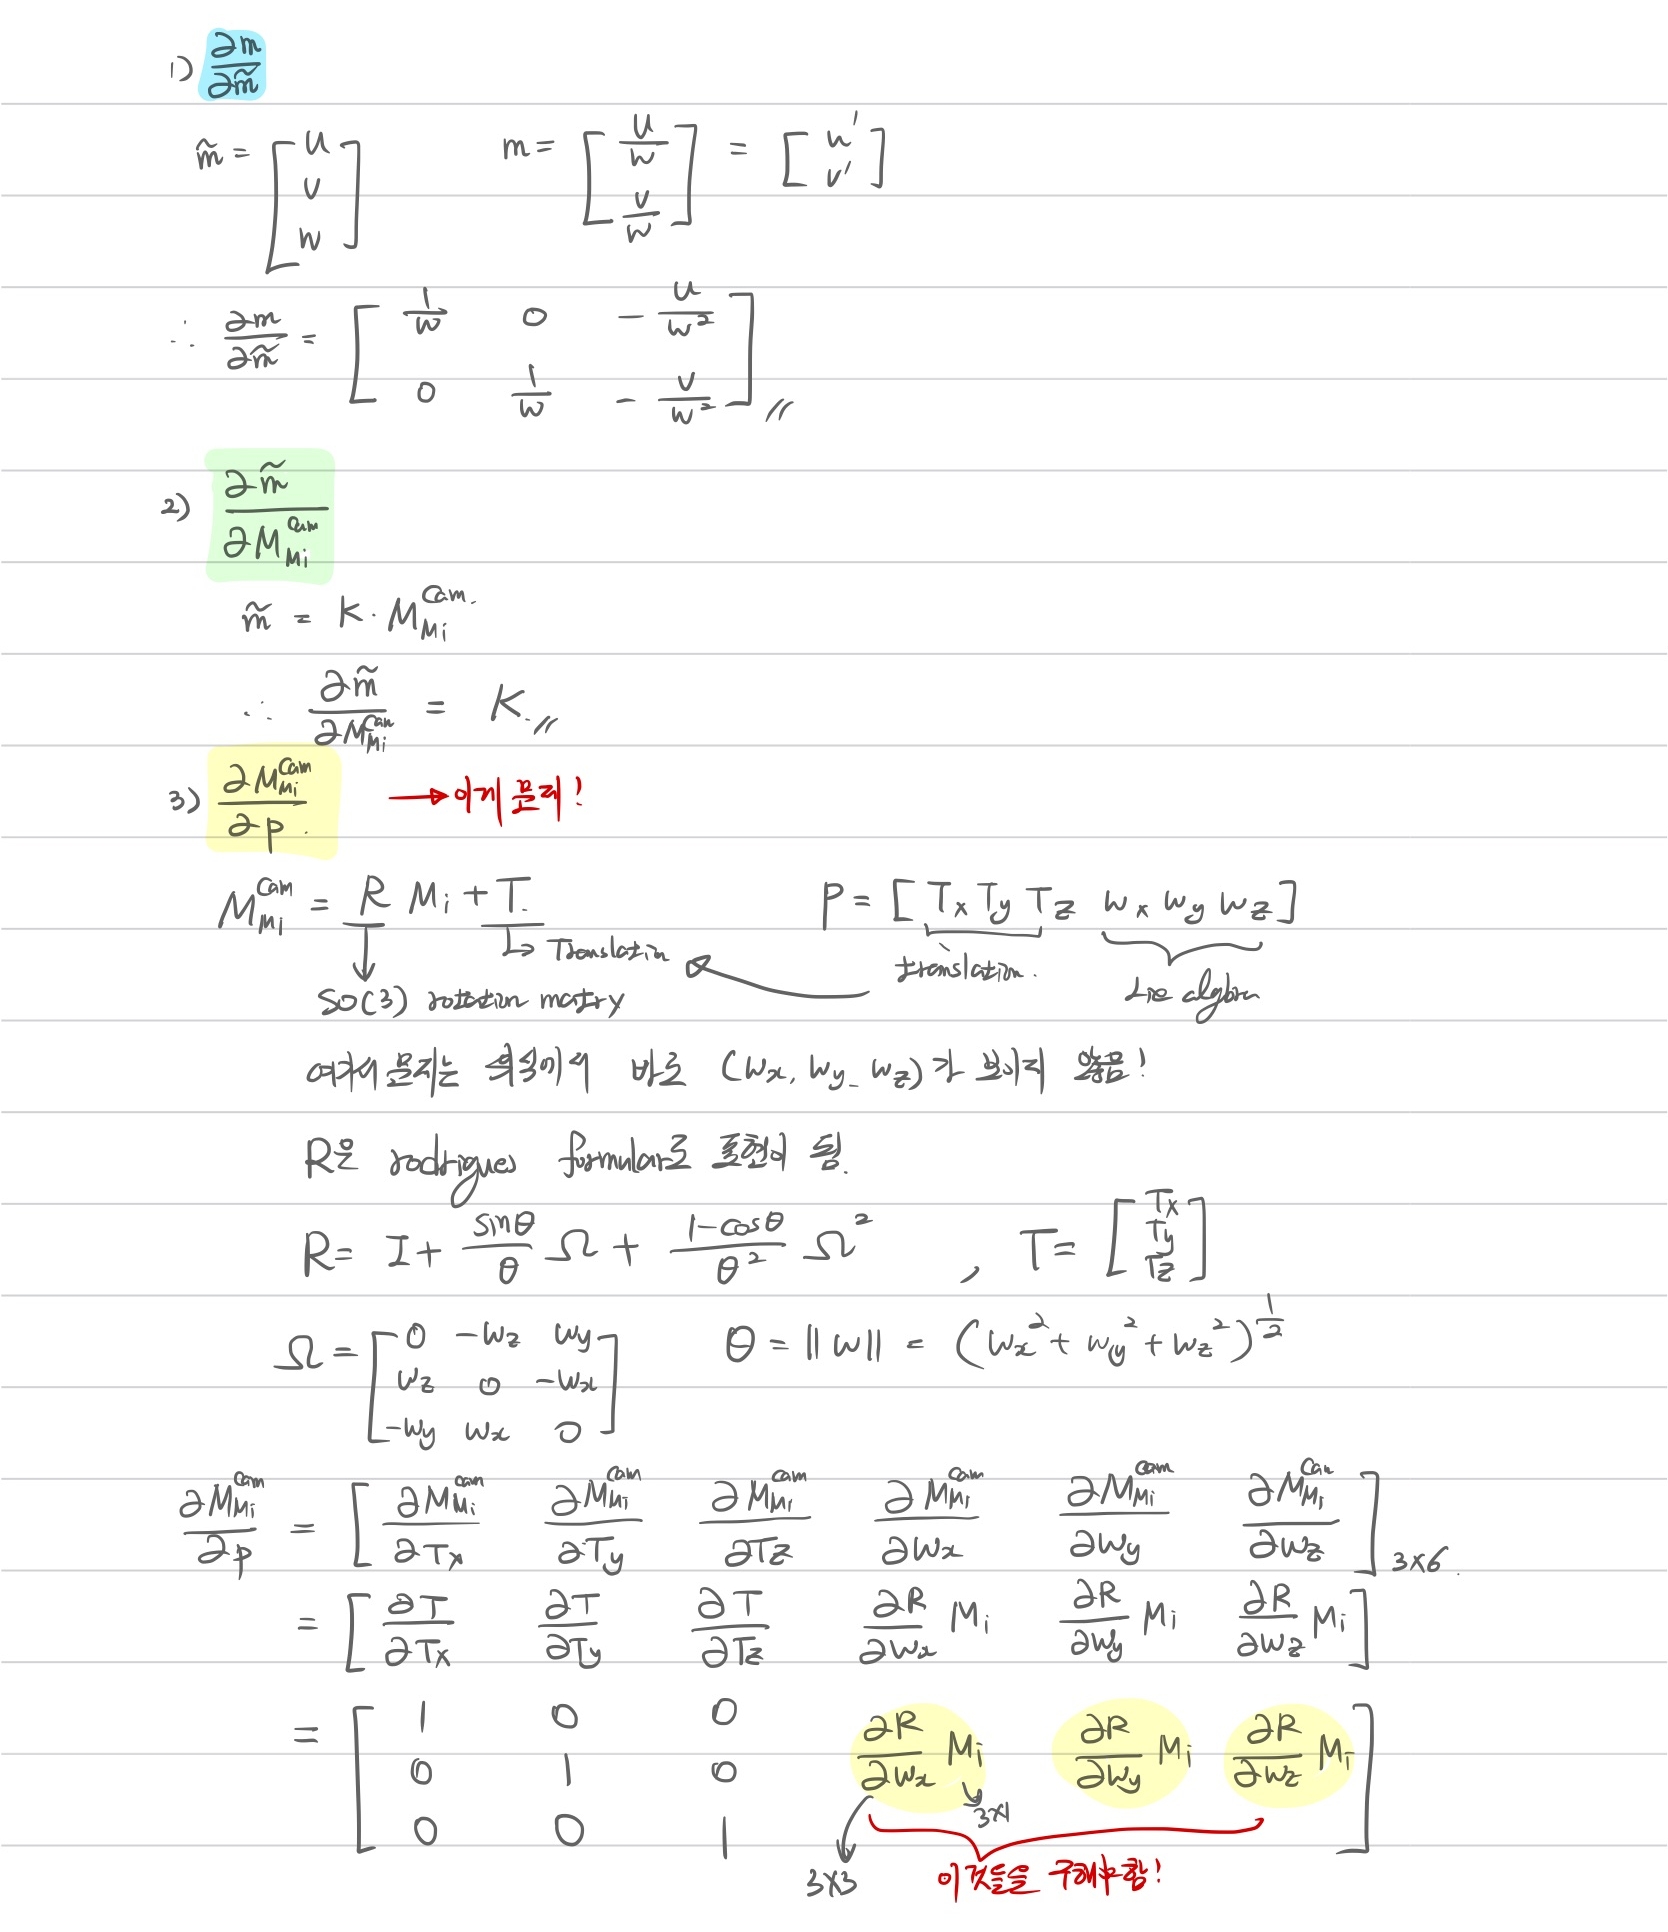 1) ∂m/∂m̃
m̃ = [u v w] m = [u/w v/w] = [u' v']
∴ ∂m/∂m̃ = [1/w 0 -u/w² 0 1/w -v/w²] //
2) ∂m̃/∂M_Mi^Cam
m̃ = K · M_Mi^Cam.
∴ ∂m̃/∂M_Mi^Cam = K. //
3) ∂M_Mi^Cam/∂p. → 이게 문제!
M_Mi^Cam = R Mi + T. P = [Tx Ty Tz wx wy wz]
↳ Translation translation. Lie algbra
SO(3) rotation matrx
여기서 문제는 위식에서 바로 (wx, wy, wz)가 보이지 않음!
R은 rodrigues formular로 표현이 됨.
R = I + sinθ/θ Ω + 1-cosθ/θ² Ω² , T = [Tx Ty Tz]
Ω = [0 -wz wy wz 0 -wx -wy wx 0] θ = ||w|| = (wx² + wy² + wz²)^1/2
∂M_Mi^Cam/∂p = [∂M_Mi^Cam/∂Tx ∂M_Mi^Cam/∂Ty ∂M_Mi^Cam/∂Tz ∂M_Mi^Cam/∂wx ∂M_Mi^Cam/∂wy ∂M_Mi^Cam/∂wz] 3×6
= [∂T/∂Tx ∂T/∂Ty ∂T/∂Tz ∂R/∂wx Mi ∂R/∂wy Mi ∂R/∂wz Mi]
= [1 0 0 0 1 0 0 0 1 ∂R/∂wx Mi ∂R/∂wy Mi ∂R/∂wz Mi]
3×1
3×3 이것들을 구해야함!